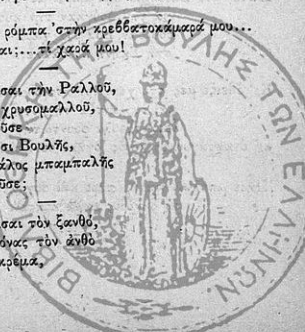 ρόμπα 'στὴν κρεββατοκάμαρά μου...
αι;...τί χαρά μου!
σαι τὴν Ραλλοῦ,
χρυσομαλλοῦ,
οῦσε
σι Βουλῆς,
άλος μπαμπαλῆς
οῦσε;
σαι τὸν ξανθό,
όνας τὸν ἀνθὸ
κρέμα,
ΒΙΒΛΙΟΘΗΚΗ ΤΗΣ ΒΟΥΛΗΣ ΤΩΝ ΕΛΛΗΝΩΝ